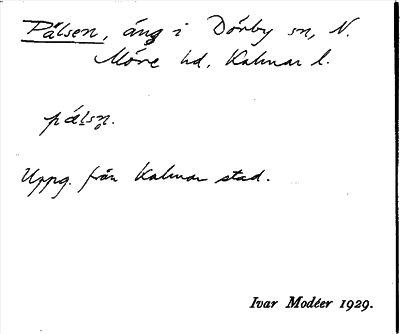 Pålsen, äng i Dörby sn, N.
Möre hd, Kalmar l.
pálsn̥.
Uppg. från Kalmar stad.
Ivar Modéer 1929.